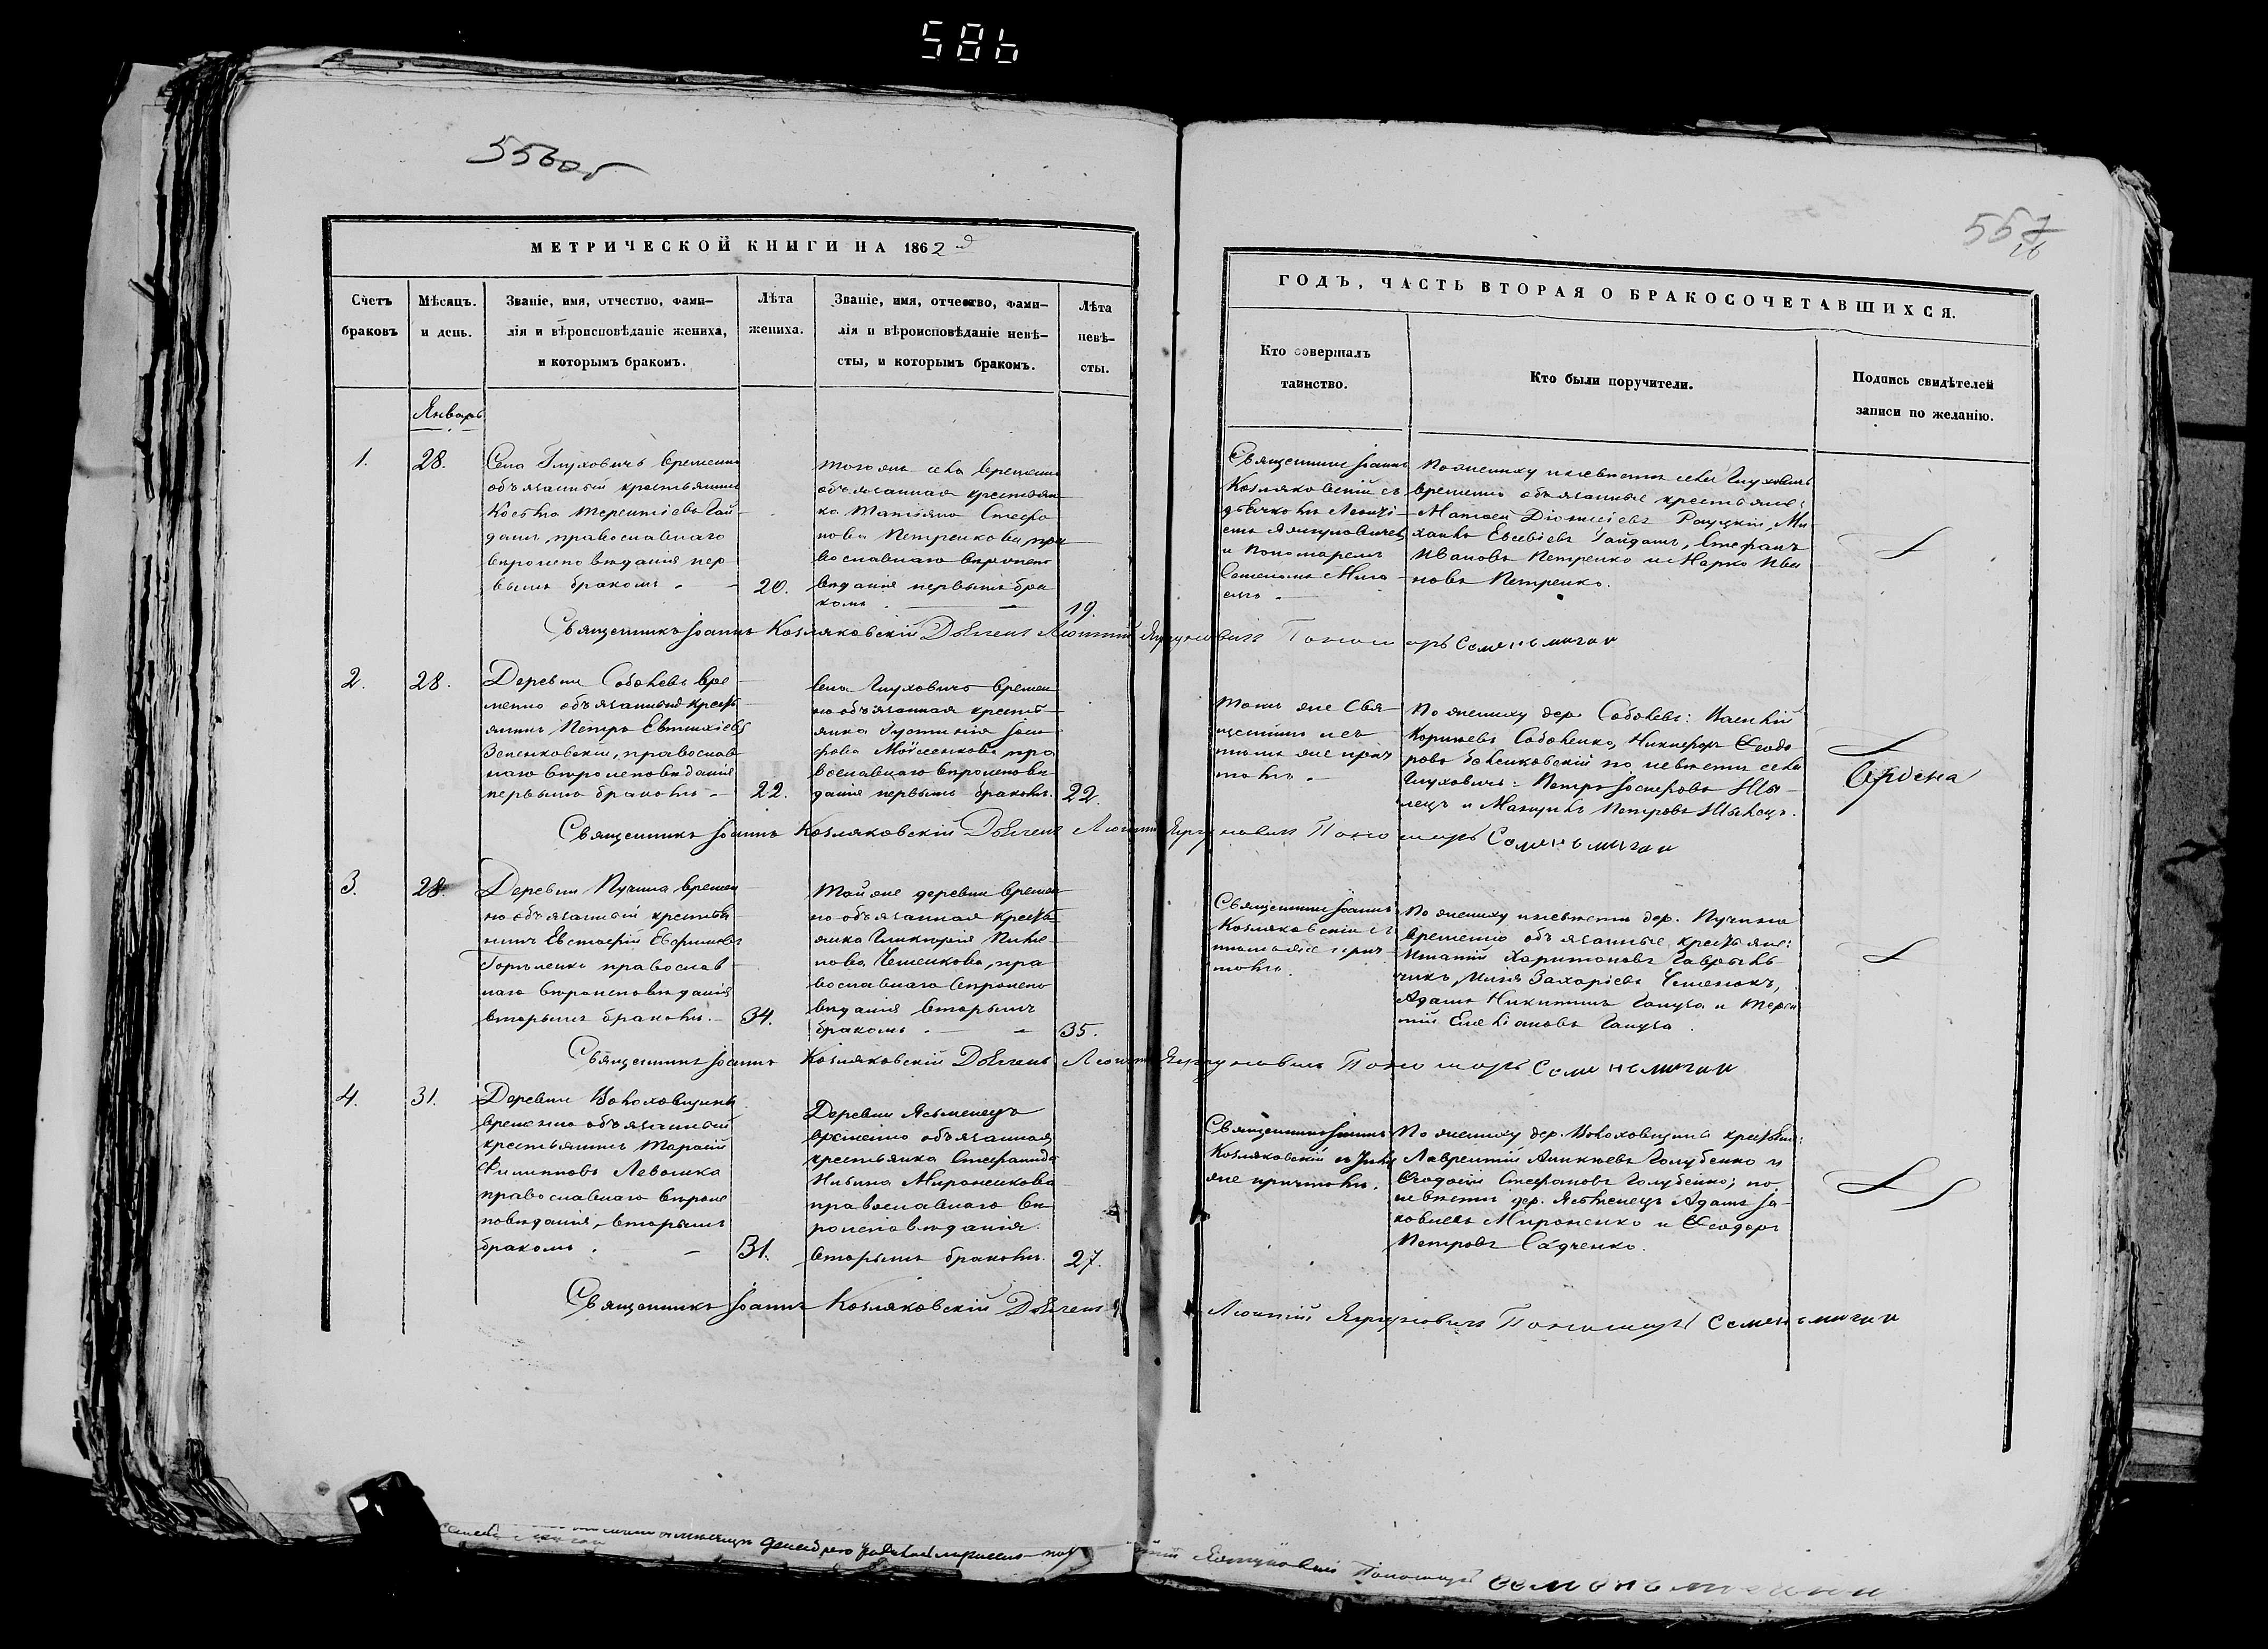 586
556об
557
26
МЕТРИЧЕСКОЙ КНИГИ НА 1862й
Счетъ
браковъ
Мѣсяцъ.
и день.
Званіе, имя, отчество, фами-
лія и вѣроисповѣданіе жениха,
и которымъ бракомъ.
Лѣта
жениха.
Званіе, имя, отчество, фами-
лія и вѣроисповѣданіе невѣ-
сты, и которымъ бракомъ.
Лѣта
невѣ-
сты.
ГОДЪ, ЧАСТЬ ВТОРАЯ О БРАКОСОЧЕТАВШИХСЯ.
Кто совершалъ
таинство.
Кто были поручители.
Подпись свидѣтелей
записи по желанію.
Январь
1.
28.
Села Глуховичъ временно
объязанный крестьянинъ
Косьма Терентіевъ Гай-
дашъ, православнаго
вѣроисповѣданія пер
вымъ бракомъ.
20.
тогоже села временно
объязанная крестьян
ка Татіяна Стефа
нова Петренкова, пра
вославнаго вѣроиспо
вѣданія первымъ бра
комъ
19.
Священникъ Іоаннъ
Козляковскій съ
дьячкомъ Леонті-
емъ
и Пономаремъ
Семеномъ Мига
емъ.
По жениху и невѣсти села Глуховичъ
временно объязанные крестьяне:
Матвей Діонисіевъ Рауцкій, Ми
хаилъ Евсевіевъ Гайдашъ, Стефанъ
Ивановъ Петренко и Марко Ива
новъ Петренко.
Священникъ Іоаннъ Козляковскій Дьячекъ Леонтій Пономарь Семенъ мигай
2.
28.
Деревни Соболевъ вре
менно объязанный кресть
янинъ Петръ Евтихіевъ
Зеленковскій, православ
наго вѣроисповѣданія
первымъ бракомъ
22.
Села Глуховичъ времен
но объязанная кресть
янка Іустинія Іоси
фова Моисеенкова, пра
вославнаго вѣроисповѣ
данія первымъ бракомъ.
22.
Тотъ же Свя
щенникъ съ
тѣмъ же прич
томъ.
По жениху дер. Соболевъ: Василій
Корніевъ Соболенко, Никифоръ Феодо
ровъ по невѣсти села
Глуховичъ: Петръ Іосифовъ Шы-
лецъ и Петровъ Шылецъ.
Священникъ Іоаннъ Козляковскій Дьячекъ Леонтій Пономарь Семенъ мигай
3.
28.
Деревни Пучина времен
но объязанный крестья
нинъ Евстафій Ефимовъ
православ
наго вѣроисповѣданія
вторымъ бракомъ.
34.
Той же деревни времен
но объязанная кресть
янка Гликерія
нова Чешенкова, пра
вославнаго вѣроиспо
вѣданія вторымъ
бракомъ
35.
Священникъ Іоаннъ
Козляковскій съ
тѣмъ же прич
томъ.
По жениху и невѣсти дер. Пучина
временно объязанные крестьяне:
Игнатій Харитоновъ Гаврыль
чикъ, Илія Захаріевъ Чешенокъ,
Адамъ Никитинъ Гапуза и Терен
тій Емеліановъ Гапуза.
Священникъ Іоаннъ Козляковскій Дьячекъ Леонтій Пономарь Семенъ мигай
4.
31.
Деревни Волоховщины
временно объязанный
крестьянинъ Тарасій
Филипповъ Левошка
православнаго вѣроис
повѣданія, вторымъ
бракомъ.
31.
Деревни Ясменецъ
временно объязанная
крестьянка Стефанида
Мироненкова
православнаго вѣ
роисповѣданія
вторымъ бракомъ.
27.
Священникъ Іоаннъ
Козляковскій съ
же причтомъ.
По жениху дер. Волоховщина крестьяне:
Лаврентій Голубенко и
Феодосій Стефановъ Голубенко; по
невѣсти дер. Ясменецъ Адамъ Іа-
ковлевъ Мироненко и Феодоръ
Петровъ Садченко.
Священникъ Іоаннъ Козляковскій Дьячекъ
Леонтій Пономарь Семенъ мигай